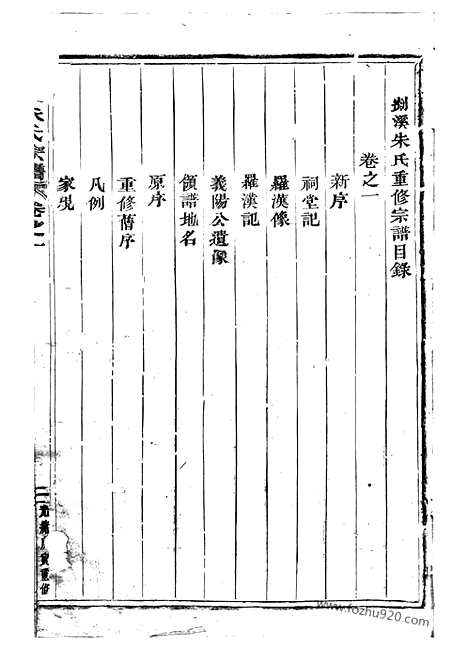 剡溪朱氏重修宗譜目錄
卷之一
新序
祠堂記
羅漢像
羅漢記
義陽公遺像
領譜地名
原序
重修舊序
凡例
家規
朱氏宗譜
卷之一
重修
www.fozhu920.com